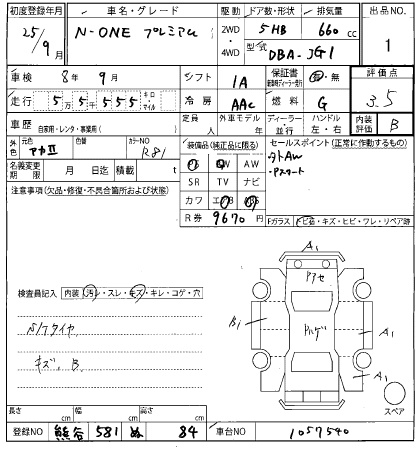 初度登録年月 車名・グレード 駆動 ドア数・形状 排気量 出品NO.
25/9月 N-ONE プレミアム 2WD・4WD 5HB 660cc 1
型式 DBA-JG1
車検 8年 9月 シフト IA 保証書 有・無 評価点
走行 5万5千555 キロ・マイル 冷房 AAC 燃料 G 3.5
車歴 自家用・レンタ・事業用( ) 定員 人 外車モデル 年 ディーラー・並行 ハンドル 左・右 内装評価 B
外色 元色 アカII 色替 カラーNO R81 装備品(純正品に限る) セールスポイント(正常に動作するもの)
PS PW AW 外AW
名義変更期限 月 日迄 積載 t SR TV ナビ ・Pスタート
注意事項(欠品・修復・不具合箇所および状態) カワ エアB ABS
R券 9670円 Fガラス トビ石・キズ・ヒビ・ワレ・リペア跡
A1
Pアセ
検査員記入 内装 汚レ・スレ・キズ・キレ・コゲ・穴
B1 Pハゲ A1
N/Tタイヤ
キズ、B.
A1
スペア
長さ cm 幅 cm 高さ cm
登録NO 熊谷 581 ぬ 84 車台NO 1057540